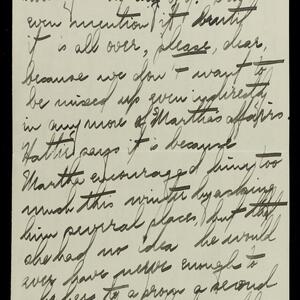 even mention it until
it is all over, please, dear,
because we don't want to
be mixed up even indirectly
in any more of Martha's affairs.
Hattie says it's because
Martha encouraged him too
much this winter by asking
him several places, but that
she had no idea he would
ever have nerve enough to
to a prom a second